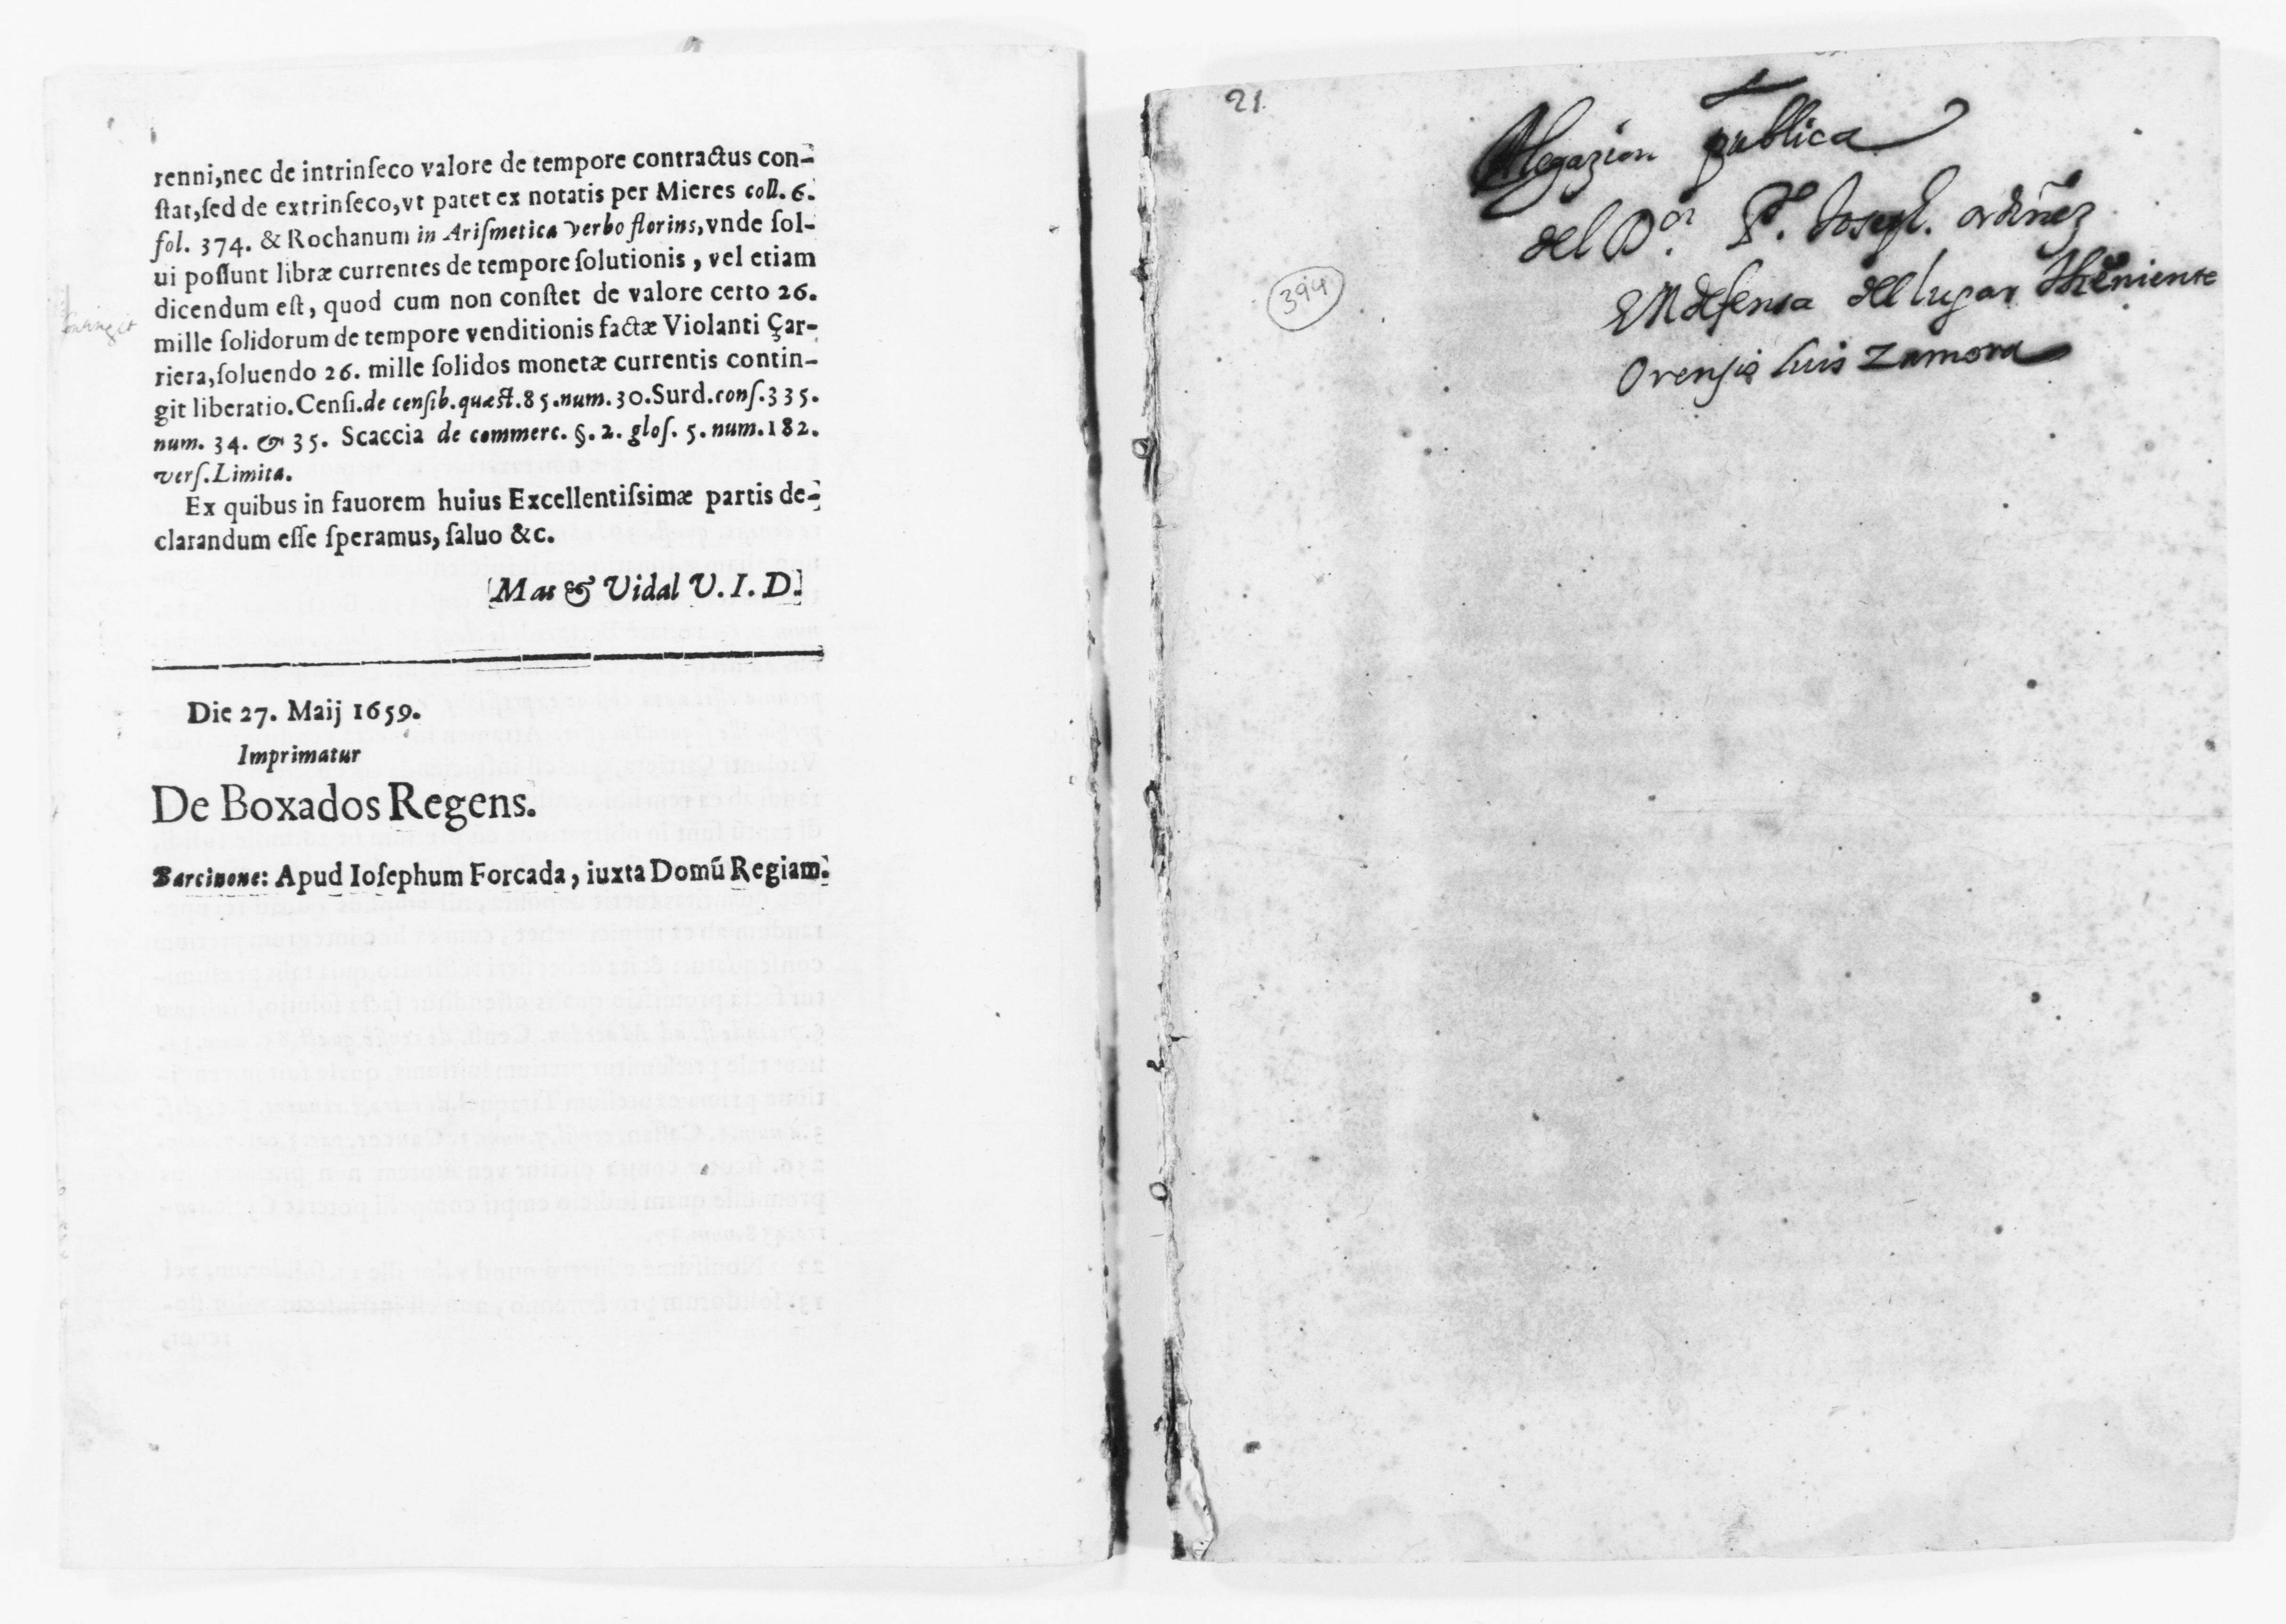 renni,nec de intrinſeco valore de tempore contractus con-
ſtat,ſed de extrinſeco,vt patet ex notatis per Mieres coll. 6.
fol. 374. & Rochanum in Ariſmetica verbo florins,vnde ſol-
ui poſſunt libræ currentes de tempore ſolutionis , vel etiam
dicendum eſt, quod cum non conſtet de valore certo 26.
mille ſolidorum de tempore venditionis factæ Violanti Çar-
riera,ſoluendo 26. mille ſolidos monetæ currentis contin-
git liberatio.Cenſi.de cenſib.quæſt.85.num.30.Surd.conſ.335.
num. 34. & 35. Scaccia de commerc. §. 2. gloſ. 5. num.182.
verſ.Limita.
Ex quibus in fauorem huius Excellentiſsimæ partis de-
clarandum eſſe ſperamus, ſaluo &c.
[Mas & Vidal V. I. D.]
Die 27. Maij 1659.
Imprimatur
De Boxados Regens.
Barcinone: Apud Ioſephum Forcada , iuxta Domũ Regiam.
21.
Alegazion publica
del Dor. Po. Joseph. ordiñez
En defensa del lugar theniente
Orensis Luis Zamora
394.